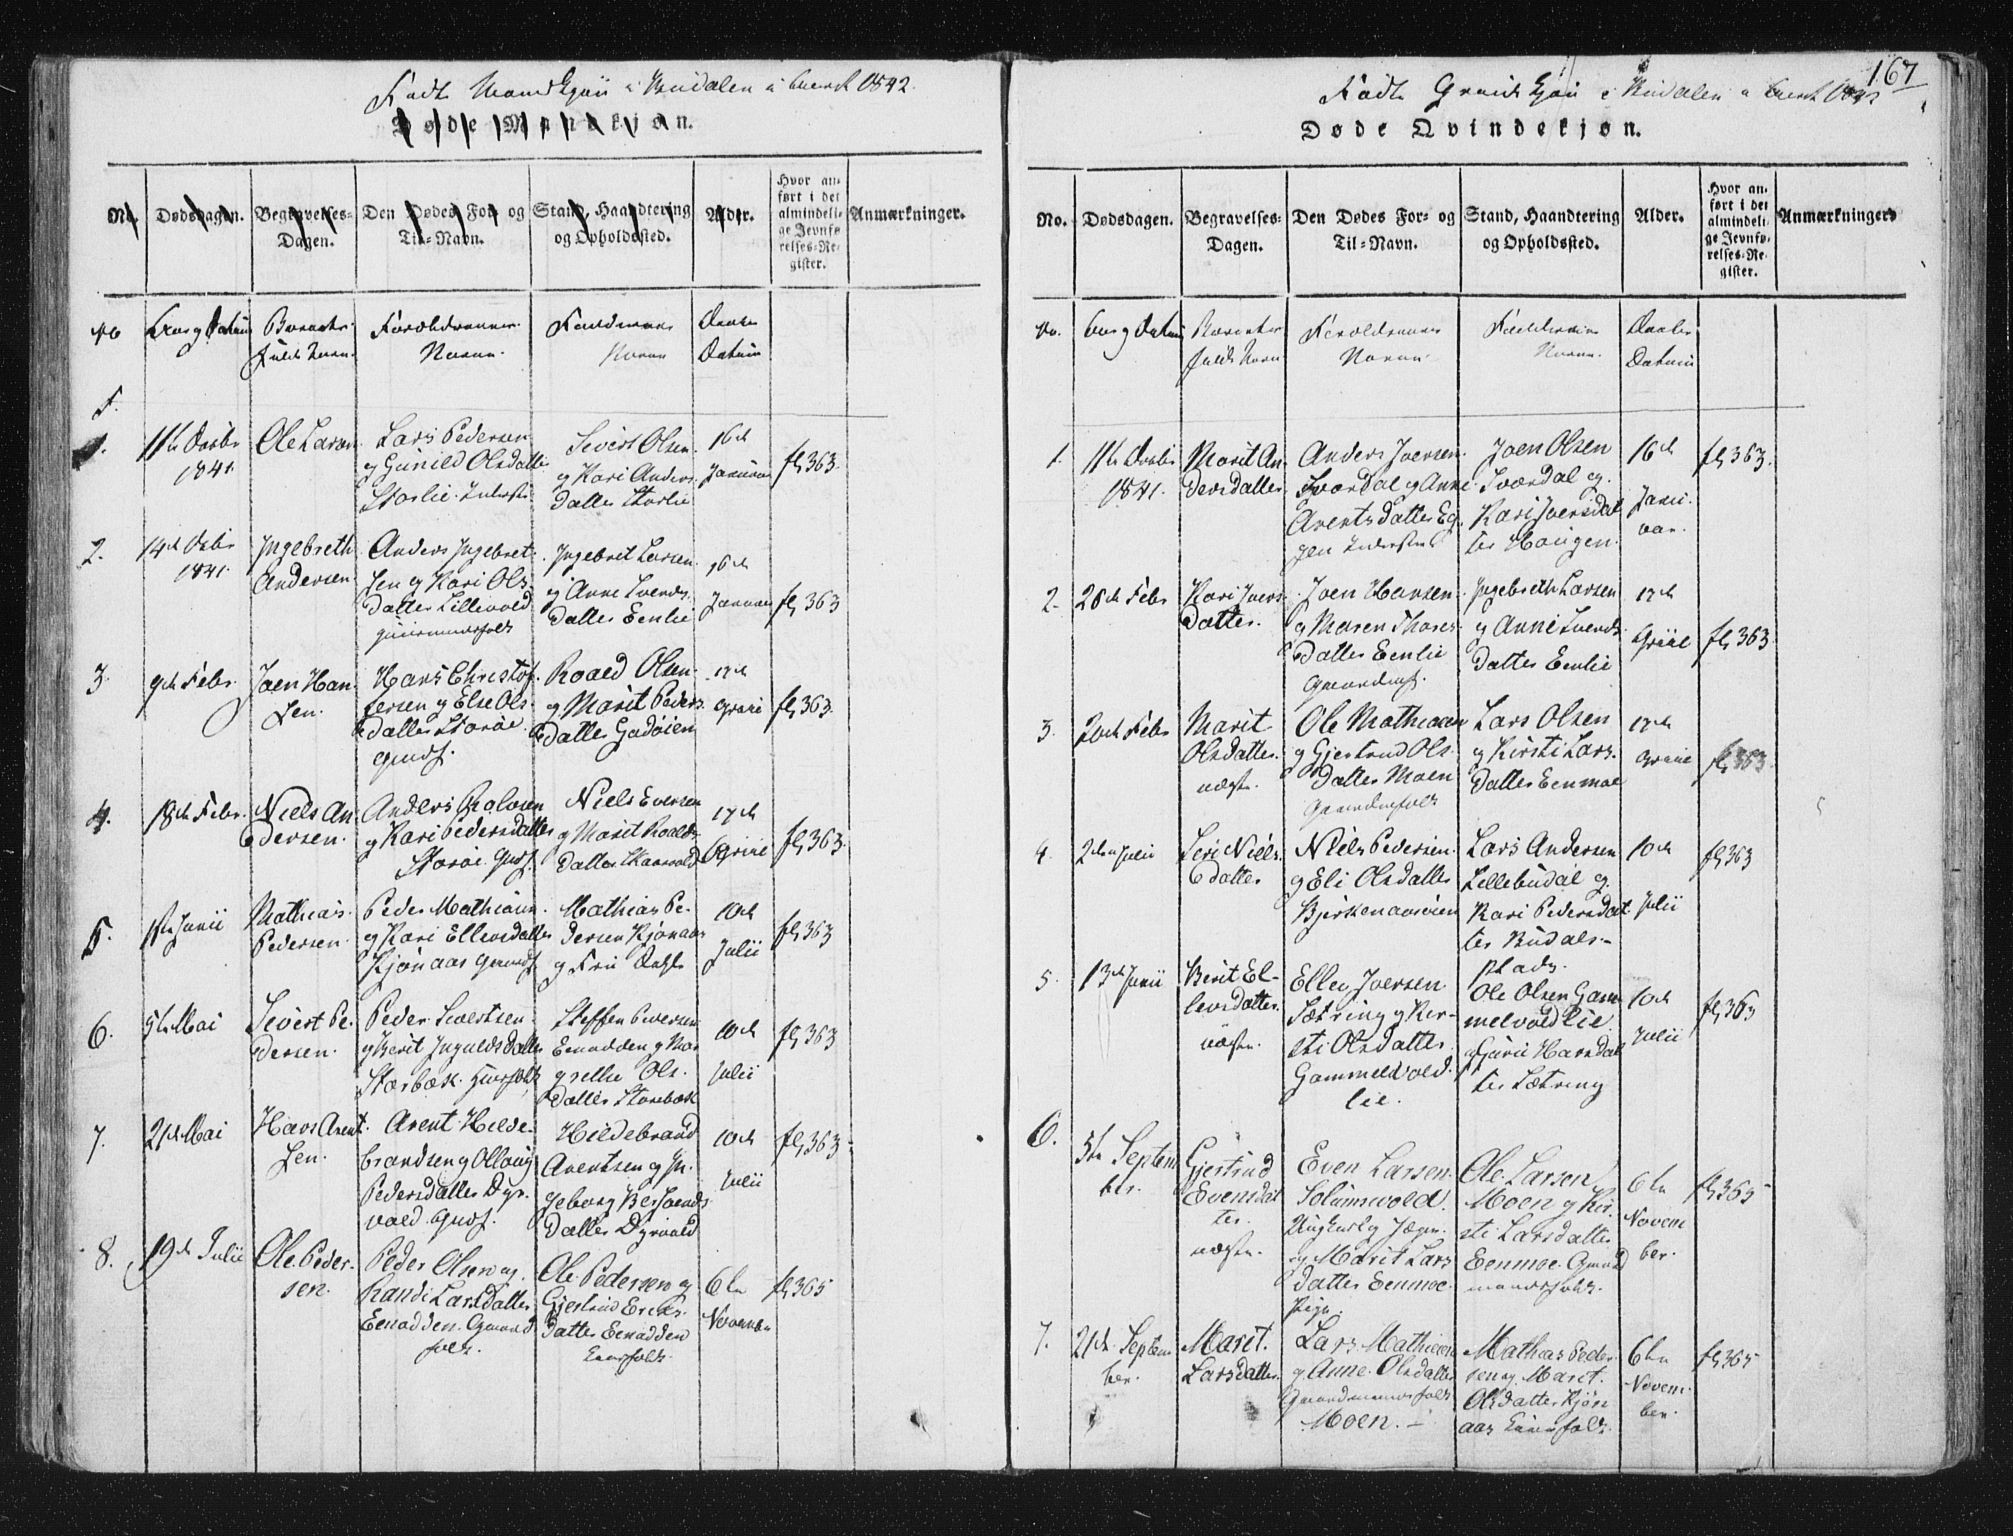 Født Mandkjøn i Budalen i Aaret 1842.
Døde Mandkjøn.
No. Dødsdagen. Begravelses-Dagen. Den Dødes For- og Til-Navn. Stand, Haandtering og Opholdssted. Alder. Hvor anført i det almindelige Jevnførelses-Register. Anmærkninger.
No Aar og Datum Barnets fulde Navn Forældrenes Navne. Faddernes Navne Daabs Datum
1. 11te Decbr 1841. Ole Larsen
Lars Pedersen
og Gunild Olsdatter
Storlie
Sivert Olsen
og Kari Anders
datter Storlie
16de
Januar
fl 363.
2. 14de Decbr 1841.
Ingebreth
Andersen.
Anders Ingebret
sen og Kari Ols
datter Lillevold
Ingebret Larsen
og Anne Svends
datter Eenlie
16de
Januar
fl 363
3. 9de Febr.
Joen Han
sen.
Hans Christof
fersen og Else Ols
datter Storøe
Roald Olsen
og Marit Peders
datter Gadøien
17de
April
fl 363.
4. 18de Febr.
Niels An
dersen.
Anders Roalsen
og Kari Pedersdatter
Storøe
Niels Eversen
og Marit Roalds
datter
17de
April
fl 363.
5. 1ste Junii
Mathias
Pedersen.
Peder Mathiasen
og Kari Ellevsdatter
Kjønaas
Mathias Pe
dersen Kjønaas
10de
Julii
fl 363
6. 5te Mai
Sivert Pe
dersen.
Peder Sivertsen
og Berit Ingulds datter
Storbæk
Steffen Eversen
Eenodden og Mar
grethe Ols
datter Storbæk
10de
Julii
fl 363
7. 21de Mai
Hans Arent
sen.
Arent Hilde
brandsen og Olloug
Pedersdatter Dyr
vold
Hildebrand
Arentsen og In
geborg Bersvends
datter Dyrvold
10de
Julii
fl 363
8. 19de Julii
Ole Peder
sen.
Peder Olsen og
Randi Larsdatter
Eenodden
folk.
Ole Pedersen og
Gjertrud Ericks
datter Eenodden
6te
November
fl 365
167
Født Qvindekjøn i Budalen i Aaret 1842
Døde Qvindekjøn.
No. Dødsdagen. Begravelses-Dagen. Den Dødes For- og Til-Navn. Stand, Haandtering og Opholdssted. Alder. Hvor anført i det almindelige Jevnførelses-Register. Anmærkninger
No. Aar og Datum Barnets fulde Navn Forældrenes Navne. Faddernes Navne. Daabs Datum
1. 11te Decbr 1841.
Marit An
dersdatter
Anders Joersen
Sværdal og Anne
Arentsdatter
Joen Olsen
Sværdal og
Kari Joersdat
ter Haugen.
16de
Janu
var.
fl 363.
2. 20de Febr
Kari Joens
datter.
Joen Hansen
og Maren Thores
datter Eenlie
Ingebreth Larsen
og Anne Svends
datter Eenlie
17de
April
fl 363
3. 20de Febr
Marit
Olsdatter.
Ole Mathiasen
og Gjertrud Ols
datter Moen
Gaardmfolk
Lars Olsen
og Kirsti Lars
datter Eenmoe
17de
April
fl 363
4. 2den Julii
Siri Niels
datter
Niels Pedersen
og Eli Olsdatter
Bjerkenaasøien
Lars Andersen
Lillebudal og
Kari Pedersdat
ter Budals-
plads.
10de
Julii
fl 363
5. 13de Junii
Berit El-
levsdatter.
Ellev Joersen
Sætring og Kir-
sti Olsdatter
Gammelvold
lie.
Ole Olsen Gam
melvoldlie
og Guru Hansdat
ter Sætring
10de
Julii
fl 363
6. 5te Septem
ber.
Gjertrud
Evensdat
ter.
Even Larsen
Solumsvold
Ungkarl og
og Marit Lars
datter Eenmoe
Pige.
Ole Larsen
Moen og Kir
sti Larsdatter
Eenmoe Gaard
mandsfolk.
6te
Novem
ber.
fl 365
7. 21de Septem
ber.
Marit
Larsdatter.
Lars Mathiesen
og Anne Olsdatter
Gaardmandsfolk
Moen.
Mathias Peder
sen og Marit
Olsdatter Kjøn
aas
6te
Novem
ber.
fl 365